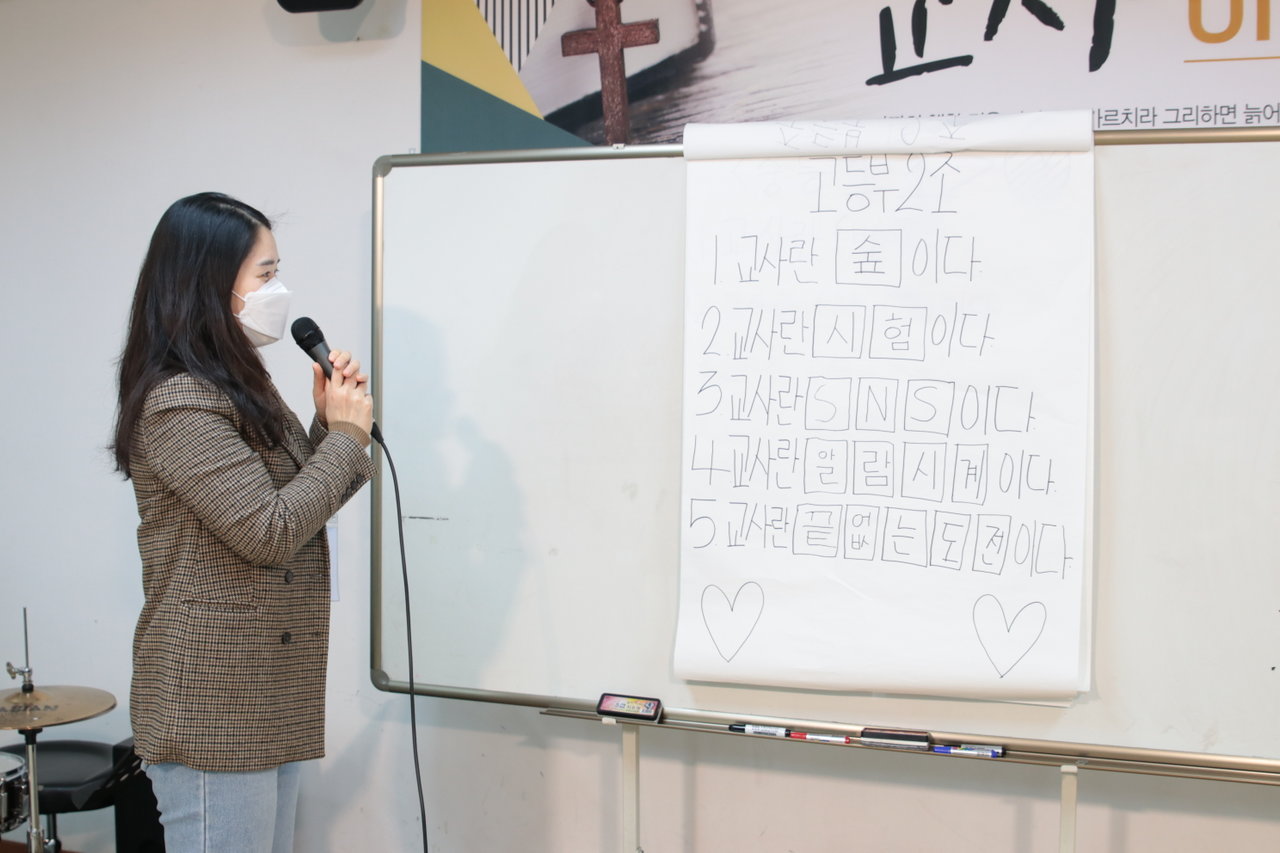 교사
가르치라 그리하면 늙어
고등부2조
1. 교사란 숲이다.
2. 교사란 시험이다.
3 교사란 SNS이다.
4 교사란 알람시계이다.
5. 교사란 끝없는도전이다.
SABIAN